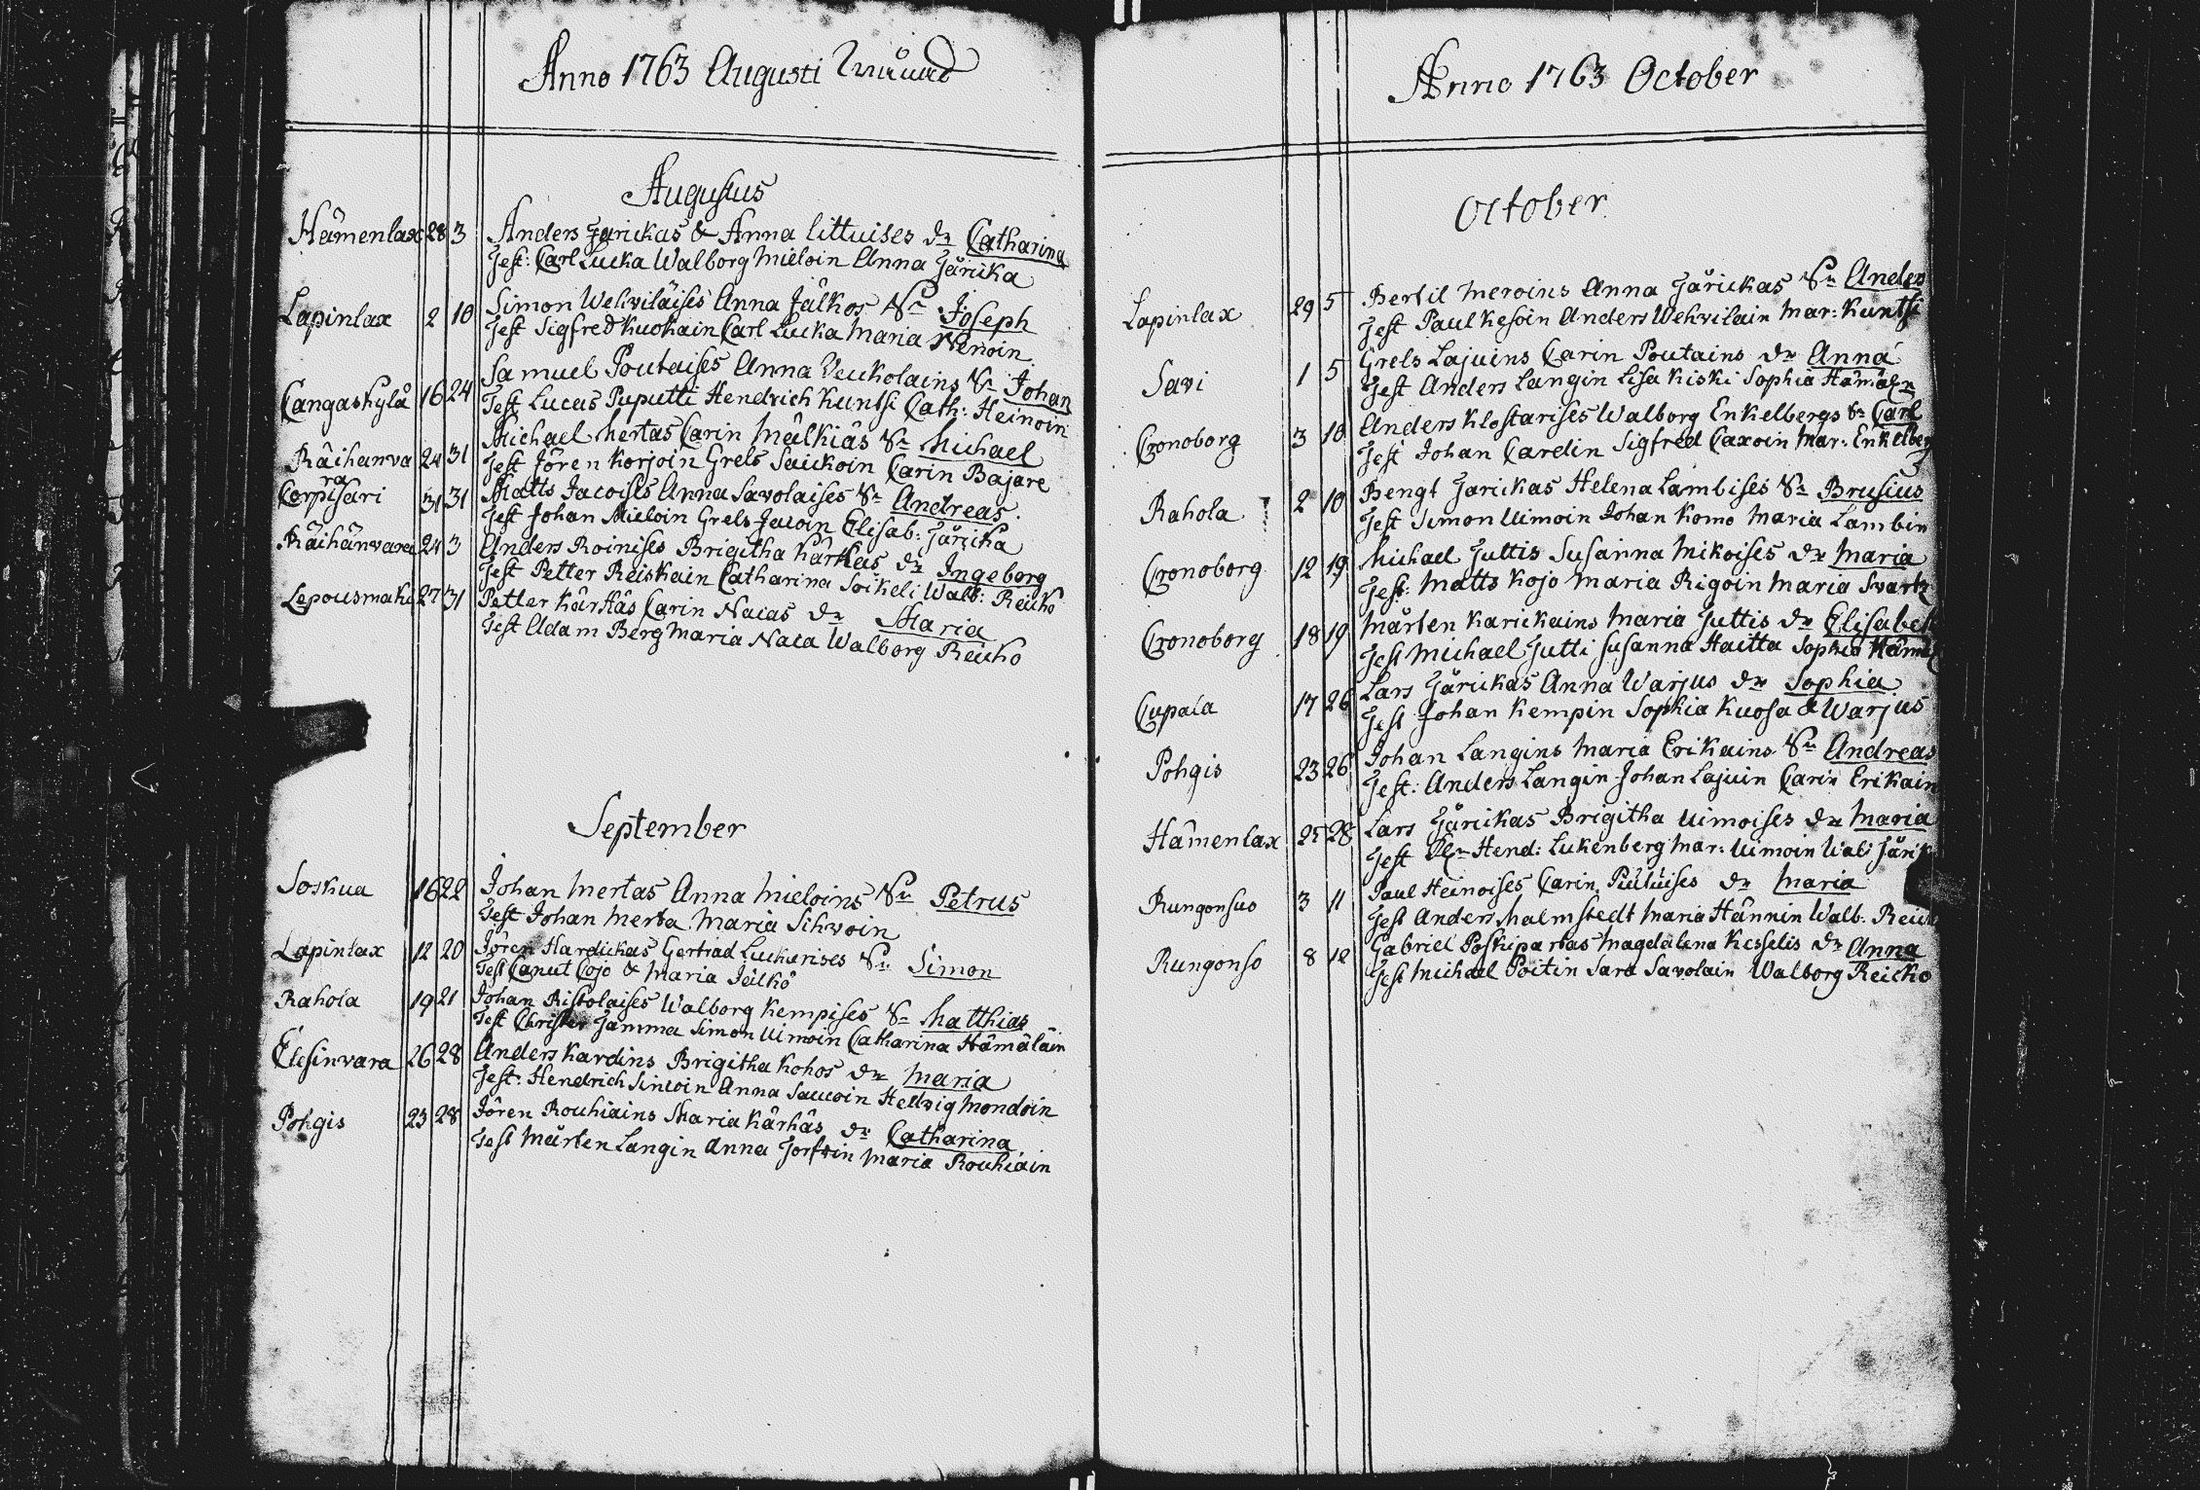 Anno 1763 Augusti
Augustus
Hämenlax 28 3 Anders Järickas & Anna Littuises dr Catharina
Test: Carl Lucka Walborg Mieloin Anna Järicka
Lapinlax 2 10 Simon Wehviläises Anna Jälkos Sn Joseph
Test Sigfred Kuokain Carl Lucka Maria Meroin
Cangaskylä 16 24 Samuel Poutaises Anna Leukolains Sn Johan
Test Lucas Puputti Hendrich Kuntsi Cath: Heinoin
Räihanvara 24 31 Michael Mertas Carin Mälkiäs Sn Michael
Test Jören Korjoin Grels Saukoin Carin Bajare
Corpisari 31 31 Matts Jacoises Anna Savolaises Sn Andreas
Test Johan Mieloin Grels Jacoin Elisab: Järicka
Räihänvara 24 3 Anders Roinises Brigitha Kärkäs dr Ingeborg
Test Petter Reiskain Catharina Soikeli Walb: Reicko
Lepousmaki 27 31 Petter Kärkäs Carin Nacas dr Maria
Test Adam Berg Maria Naca Walborg Reicko
September
Soskua 16 22 Johan Mertas Anna Mieloins Sn Petrus
Test Johan Merta Maria Sihvoin
Lapinlax 12 20 Jören Hardickas Gertrad Luckarises Sn Simon
Test Canut Cojo & Maria Jälkö
Rahola 19 21 Johan Ristolaises Walborg Kempises Sn Matthias
Test Christer Jamma Simon Uimoin Catharina Hämäläin
Elesinvara 26 28 Anders Kardins Brigitha Kohos dr Maria
Test: Hendrich Sinkoin Anna Saucoin Hellvig Mondoin
Pohgis 23 28 Jören Rouhiains Maria Kärhäs dr Catharina
Test Mårten Langin Anna Maria Rouhiain
Anno 1763 October
October
Lapinlax 29 5 Bertil Meroins Anna Järickas Sn Anders
Test Paul Kesoin Anders Wehvilain Mar: Kuntsi
Savi 1 5 Grels Lajuins Carin Poutains dr Anna
Test Anders Langin Lisa Kiski Sophia
Cronoborg 3 10 Anders Klostarises Walborg Enkelbergs Sn Carl
Test Johan Cardin Sigfred Caxoin Mar: Enkelberg
Rahola 2 10 Bengt Jarickas Helena Lambises Sn Brusius
Test Simon Uimoin Johan Komo Maria Lambin
Cronoborg 12 19 Michael Juttis Susanna Mikoises dr Maria
Test: Matts Kojo Maria Rigoin Maria Svartz
Cronoborg 18 19 Mårten Karickains Maria Juttis dr Elisabet
Test Michael Jutti Susanna Haitta Sophia
Cupala 17 26 Lars Järickas Anna Warjus dr Sophia
Test Johan Kempin Sophia Kuosa & Warjus
Pohgis 23 26 Johan Langins Maria Erikains Sn Andreas
Test: Anders Langin Johan Lajuin Carin Erikain
Hämenlax 25 28 Lars Järickas Brigitha Uimoises dr Maria
Test Hend: Lukenberg Mar: Uimoin Walb
Rungonsuo 3 11 Paul Heinoises Carin dr Maria
Test Anders Malmstedt Maria Hännin Walb: Reicko
Rungonso 8 12 Gabriel Poskipartas Magdalena Kesselis dr Anna
Test Michael Poitin Sara Savolain Walborg Reicko